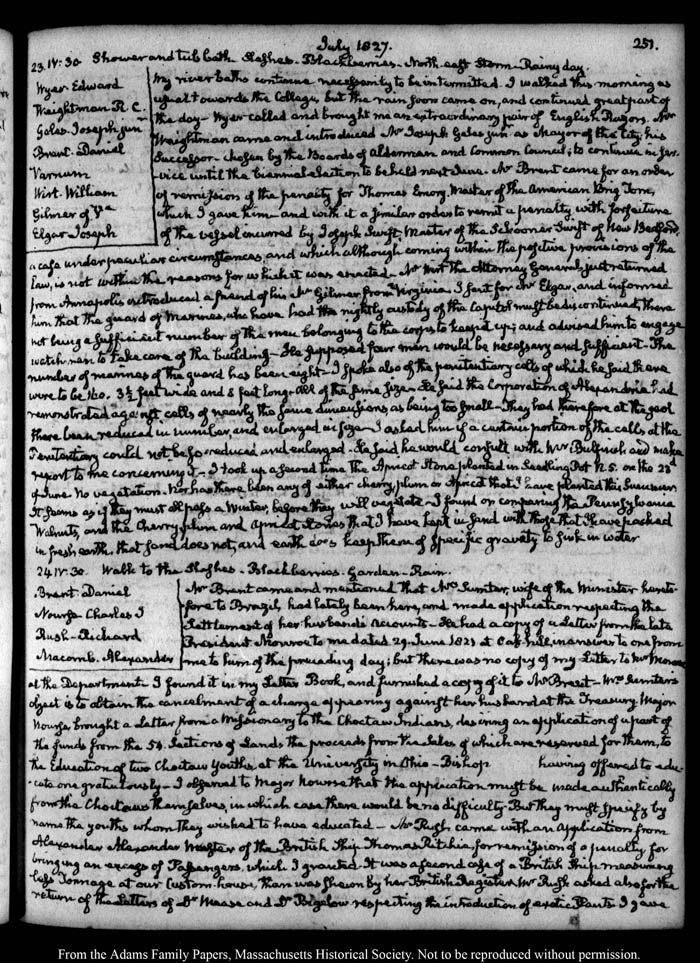 July 1827.
251.
23. IV:30 Shower and tub bath Slashes - Blackberries - North-east Storm - Rainy day.
Wyer Edward
Weightman R. C.
Gales Joseph junr
Brent. Daniel
Varnum
Wirt. William
Gilmer of Va
Elgar Joseph
My river baths continue necessarily to be intermitted. I walked this morning as
usual towards the College, but the rain soon came on, and continued great part of
the day - Wyer called and brought me an extraordinary pair of English Razors. Mr
Weightman came and introduced Mr Joseph Gales junr as Mayor of the City; his
Successor - chosen by the Boards of Aldermen and Common Council; to continue in ser-
-vice until the biennial election to be held next June. Mr Brent came for an order
of remission of the penalty for Thomas Emory Master of the American brig Tom,
which I gave him - and with it a similar order to remit a penalty with forfeiture
of the vessel incurred by Joseph Swift, Master of the Schooner Swift of New Bedford,
a case under peculiar circumstances, and which although coming within the positive provisions of the
law, is not within the reasons for which it was enacted - Mr Wirt the Attorney General, just returned
from Annapolis introduced a friend of his Mr Gilmer from Virginia. I sent for Mr Elgar, and informed
him that the guard of Marines, who have had the nightly custody of the Capitol must be discontinued, there
not being a sufficient number of the men belonging to the corps to keep it up; and advised him to engage
watch-men to take care of the building - He supposed four men would be necessary and sufficient - The
number of marines of the guard has been eight - I spoke also of the penitentiary cells of which he said there
were to be 160. 3½ feet wide and 8 feet long - all of the same size - He said the Corporation of Alexandria had
remonstrated against cells of nearly the same dimensions, as being too small - They had therefore at the gaol
there been reduced in number, and enlarged in size - I asked him if a certain portion of the cells at the
Penitentiary could not be so reduced and enlarged. He said he would consult with Mr Bulfinch and make
report to me concerning it - I took up a second time the Apricot Stone planted in Seedling Pot N. 5. on the 23d
of June. No vegetation. Nor has there been any of either cherry, plum or Apricot that I have planted this Summer.
It seems as if they must all pass a Winter, before they will vegetate - I found on comparing the Pennsylvania
Walnuts, and the Cherry, plum and Apricot stones that I have kept in sand with those that I have packed
in fresh earth, that sand does not, and earth does keep them of specific gravity to sink in water
24. IV:30. Walk to the Slashes - Blackberries - Garden - Rain.
Brent Daniel
Nourse Charles J
Rush - Richard
Macomb. Alexander
Mr Brent came and mentioned that Mrs Sumter, wife of the Minister hereto-
fore to Brazil, had lately been here, and made application respecting the
Settlement of her husband's accounts - He had a copy of a Letter from the late
President Monroe to me dated 29. June 1821 at Oak hill, in answer to one from
me to him of the preceding day; but there was no copy of my Letter to Mr Monroe
at the Department. I found it in my Letter Book, and furnished a copy of it to Mr Brent - Mrs Sumter's
object is to obtain the cancelment of a charge appearing against her husband at the Treasury. Major
Nourse brought a Letter from a Missionary to the Choctaw Indians, desiring an application of a part of
the funds from the 54. Sections of Lands, the proceeds from the Sales of which are reserved for them, to
the Education of two Choctaw Youths, at the University in Ohio - Bishop having offered to edu-
-cate one gratuitously - I observed to Major Nourse that the application must be made authentically
from the Choctaws themselves, in which case there would be no difficulty. But they must specify by
name the youths whom they wished to have educated - Mr Rush came with an application from
Alexander Alexander Master of the British Ship Thomas Ritchie, for remission of a penalty for
bringing an excess of Passengers, which I granted. It was a second case of a British Ship measuring
less Tonnage at our Custom-house, than was shewn by her British Register. Mr Rush asked also for the
return of the Letters of Dr Mease and Dr Bigelow respecting the introduction of exotic Plants I gave
From the Adams Family Papers, Massachusetts Historical Society. Not to be reproduced without permission.